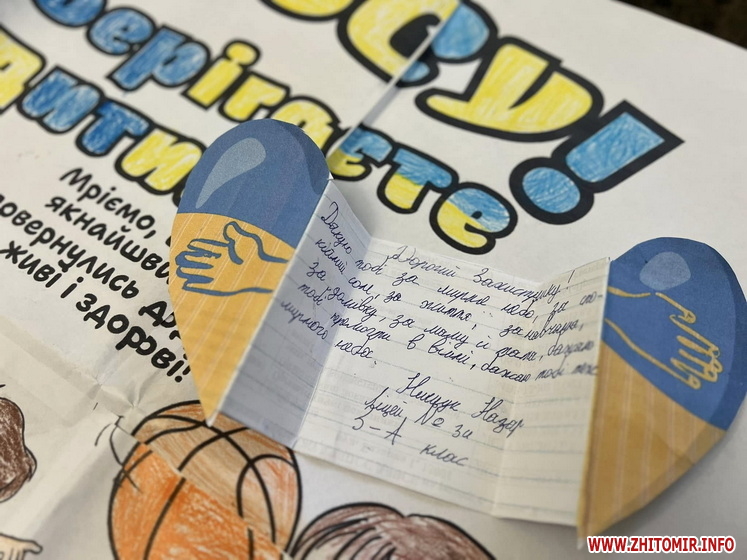 СУ!
ерігаєте
дити
Мріємо,
якнайшви
повернулись
живі і здорові!
Дорогий Захистнику!
Дякую тобі за мирне небо, за спо-
сон, за життя, за навчання,
за домівку, за маму й тата, бажаю
тобі перемоги в війні, бажаю тобі теж
мирного неба.
Назар
Ліцей №
5-А клас
WWW.ZHITOMIR.INFO